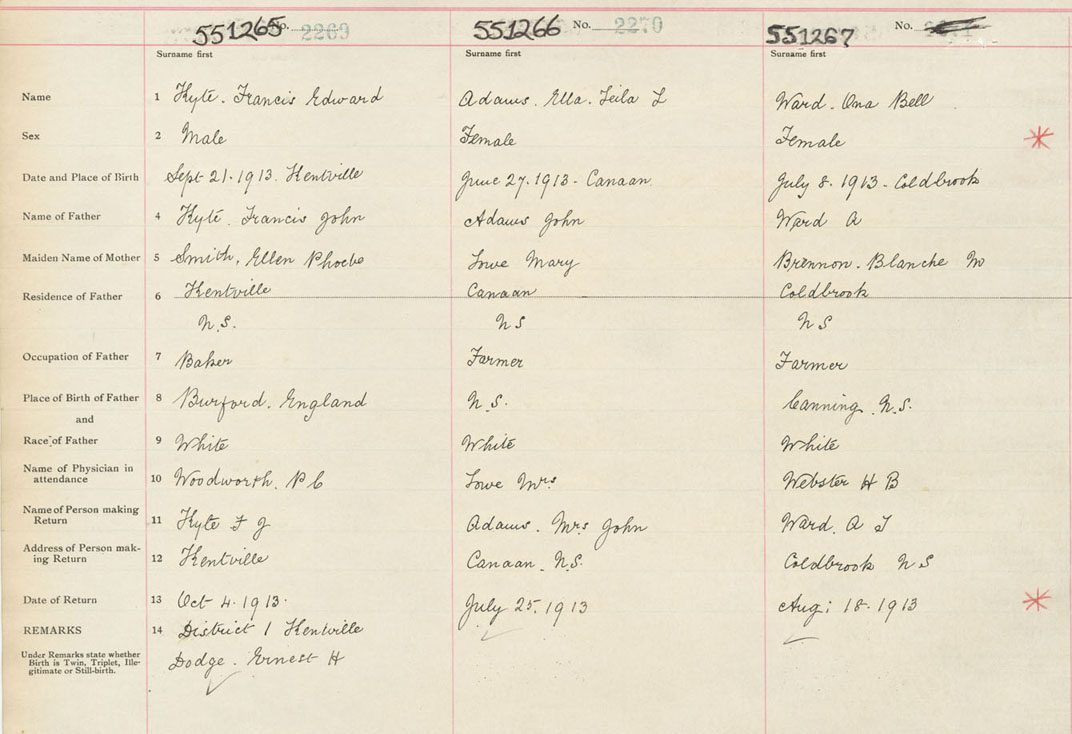 551265 No. 2269 551266 No. 2270 551267 No.
Surname first Surname first Surname first
Name 1 Kyte. Francis Edward Adams. Ella. Leila L Ward. Ona Bell
Sex 2 Male Female Female
Date and Place of Birth Sept 21. 1913. Kentville June 27. 1913 - Canaan July 8. 1913 - Coldbrook
Name of Father 4 Kyte. Francis John Adams John Ward A
Maiden Name of Mother 5 Smith, Ellen Phoebe Lowe Mary Brennon. Blanche M
Residence of Father 6 Kentville Canaan Coldbrook
N.S. NS NS
Occupation of Father 7 Baker Farmer Farmer
Place of Birth of Father 8 Burford. England N.S. Canning N.S.
and
Race of Father 9 White White White
Name of Physician in
attendance 10 Woodworth. P C Lowe Mrs Webster H B
Name of Person making
Return 11 Kyte F J Adams. Mrs John Ward. A T
Address of Person mak-
ing Return 12 Kentville Canaan. N.S. Coldbrook N S
Date of Return 13 Oct 4. 1913. July 25. 1913 Aug: 18. 1913
REMARKS 14 District 1 Kentville
Under Remarks state whether
Birth is Twin, Triplet, Ille-
gitimate or Still-birth. Dodge. Ernest H